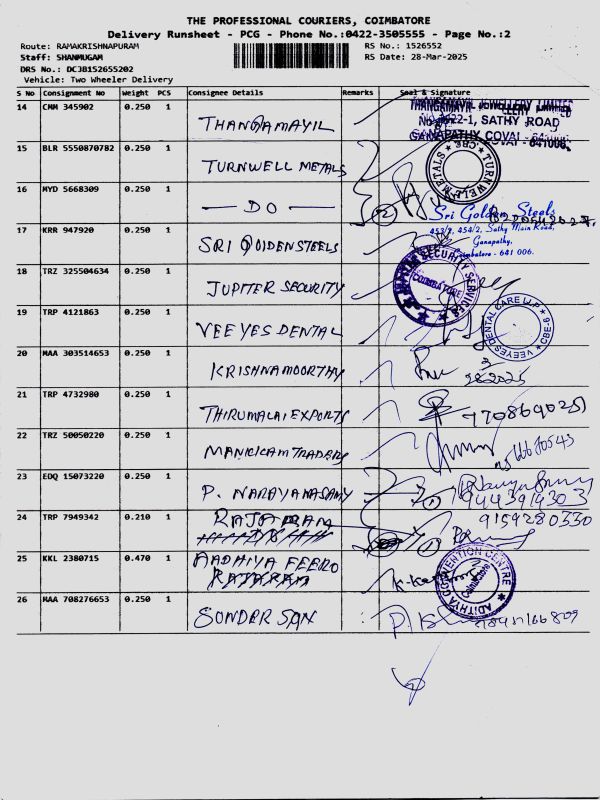 THE PROFESSIONAL COURIERS, COIMBATORE
Delivery Runsheet - PCG - Phone No.:0422-3505555 - Page No.:2
Route: RAMAKRISHNAPURAM RS No.: 1526552
Staff: SHANMUGAM RS Date: 28-Mar-2025
DRS No.: DCJB152655202
Vehicle: Two Wheeler Delivery
S No Consignment No Weight PCS Consignee Details Remarks Seal & Signature
14 CMM 345902 0.250 1 THANGAMAYIL THANGAMAYIL JEWELLERY LIMITED
SATHY ROAD
GANAPATHY, COVAI - 641006.
15 BLR 5550870782 0.250 1 TURNWELL METALS TURNWELL METALS CBE
16 MYD 5668309 0.250 1 — DO — 2
17 KRR 947920 0.250 1 SRI GOLDEN STEELS Sri Golden Steels
453/2, 454/2, Sathy Main Road,
Ganapathy,
Coimbatore - 641 006.
18 TRZ 325504634 0.250 1 JUPITER SECURITY SECURITY SERVICES COIMBATORE
19 TRP 4121863 0.250 1 VEEYES DENTAL VEEYES DENTAL CARE LLP CBE-6
20 MAA 303514653 0.250 1 KRISHNAMOORTHY
21 TRP 4732980 0.250 1 THIRUMALAI EXPORTS
22 TRZ 50050220 0.250 1 MANICKAM TRADERS
23 EDQ 15073220 0.250 1 P. NARAYANASAMY 1
9443914303
24 TRP 7949342 0.210 1 RAJARAM 9159280330
25 KKL 2380715 0.470 1 AADHIYA FEERO ADITHYA CONVENTION CENTRE Coimbatore
RAJARAM
26 MAA 708276653 0.250 1 SONDER SAN